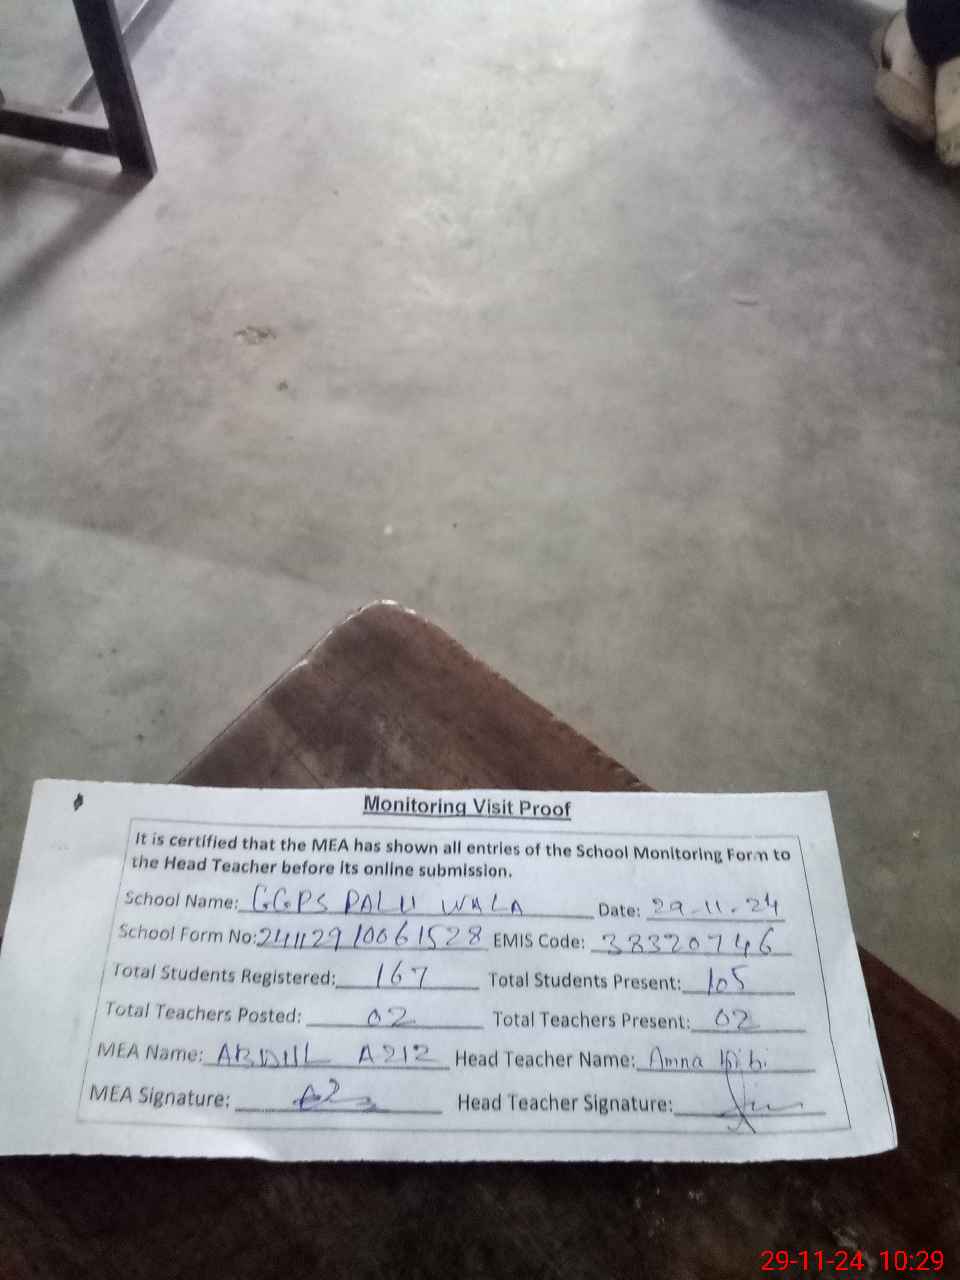 Monitoring Visit Proof
It is certified that the MEA has shown all entries of the School Monitoring Form to
the Head Teacher before its online submission.
School Name: GGPS PALU WALA Date: 29-11-24
School Form No: 24112910061528 EMIS Code: 38320746
Total Students Registered: 167 Total Students Present: 105
Total Teachers Posted: 02 Total Teachers Present: 02
MEA Name: ABDUL AZIZ Head Teacher Name: Amna Bibi
MEA Signature: Head Teacher Signature:
29-11-24 10:29